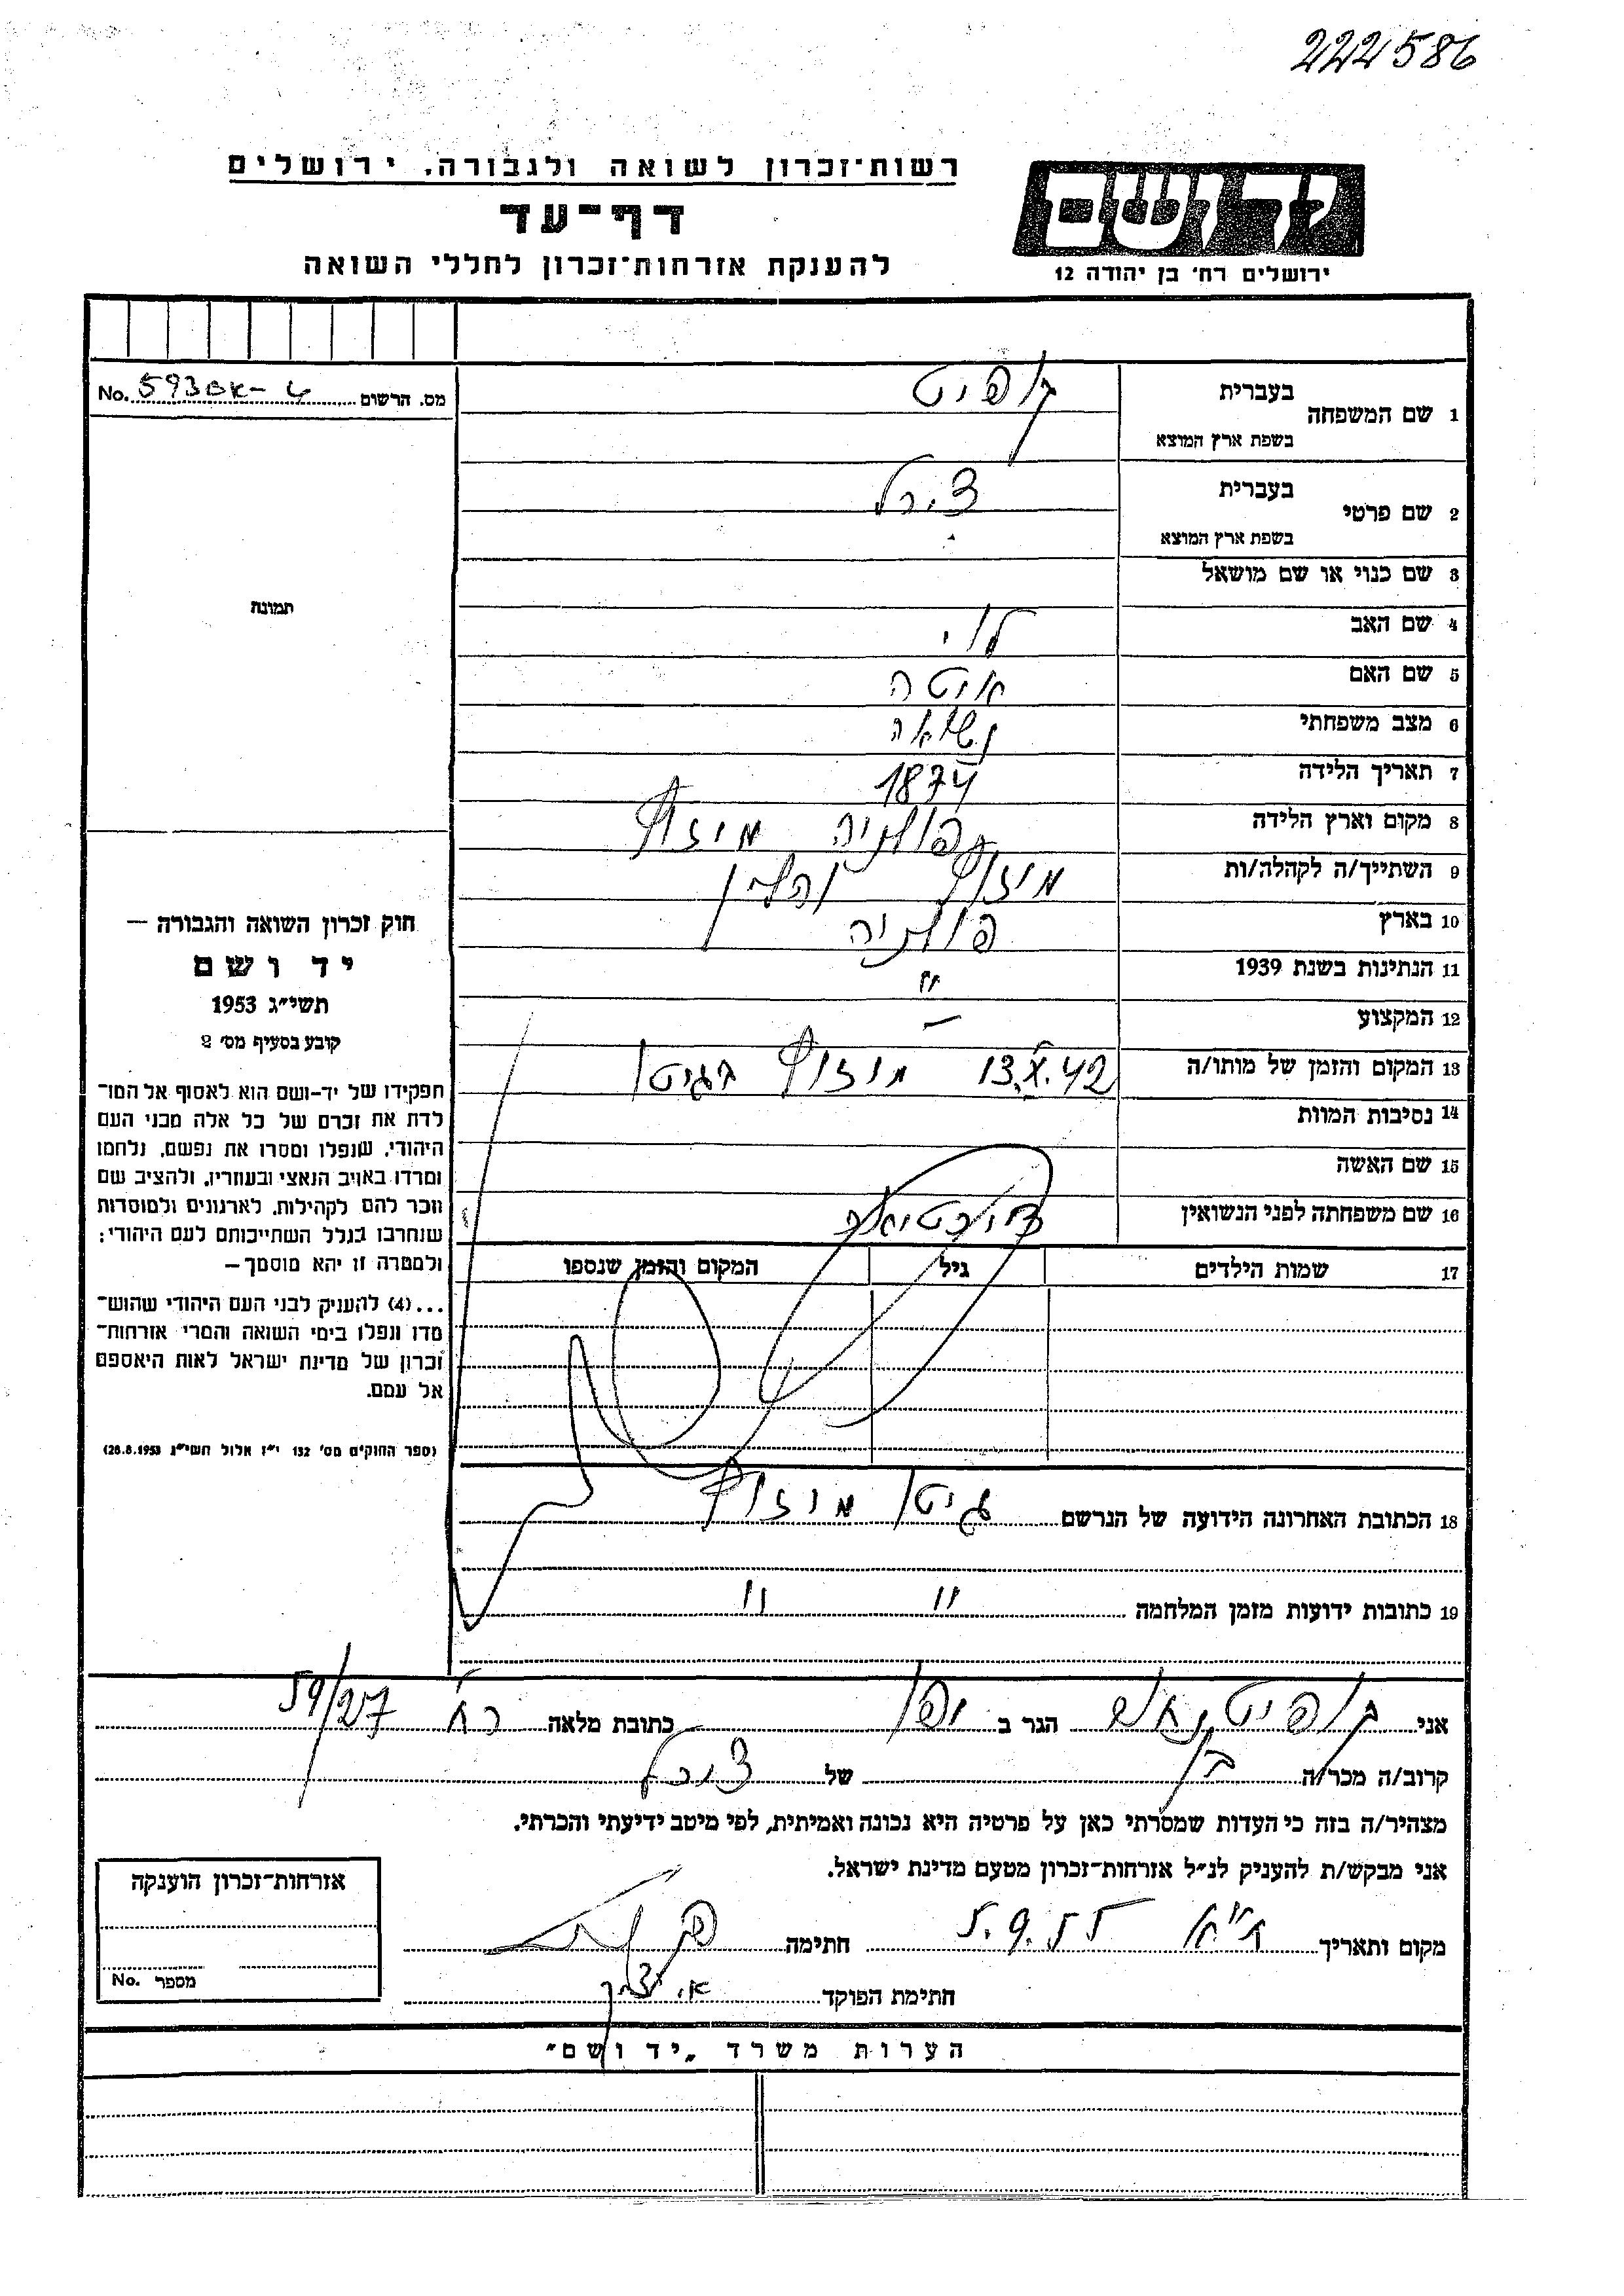 222586
רשות־זכרון לשואה ולגבורה, ירושלים
דף־עד
להענקת אזרחות־זכרון לחללי השואה
יד ושם
ירושלים רח' בן יהודה 12
מס. הרשום No.
1 שם המשפחה בעברית קופיט
בשפת ארץ המוצא
2 שם פרטי בעברית צירל
בשפת ארץ המוצא
3 שם כנוי או שם מושאל
4 שם האב לוי
5 שם האם איטה
6 מצב משפחתי נשואה
7 תאריך הלידה 1874
8 מקום וארץ הלידה פולניה מיזוץ
9 השתייך/ה לקהלה/ות מיזוץ
10 בארץ פולניה
11 הנתינות בשנת 1939 "
12 המקצוע —
13 המקום והזמן של מותו/ה 13.X.42 מיזוץ בגיטו
14 נסיבות המוות
15 שם האשה
16 שם משפחתה לפני הנשואין
17 שמות הילדים גיל המקום והזמן שנספו
18 הכתובת האחרונה הידועה של הנרשם גיטו מיזוץ
19 כתובות ידועות מזמן המלחמה " "
תמונה
חוק זכרון השואה והגבורה —
יד ושם
תשי"ג 1953
קובע בסעיף מס' 2
תפקידו של יד-ושם הוא לאסוף אל המו־
לדת את זכרם של כל אלה מבני העם
היהודי, שנפלו ומסרו את נפשם, נלחמו
ומרדו באויב הנאצי ובעוזריו, ולהציב שם
וזכר להם לקהילות, לארגונים ולמוסדות
שנחרבו בגלל השתייכותם לעם היהודי;
ולמטרה זו יהא מוסמך —
...(4) להעניק לבני העם היהודי שהוש־
מדו ונפלו בימי השואה והמרי אזרחות־
זכרון של מדינת ישראל לאות היאספם
אל עמם.
(ספר החוקים מס' 132 י"ז אלול תשי"ג 28.8.1953)
אני קופיט הגר ב יפו כתובת מלאה רח' 59/27
קרוב/ה מכר/ה בן של צירל
מצהיר/ה בזה כי העדות שמסרתי כאן על פרטיה היא נכונה ואמיתית, לפי מיטב ידיעתי והכרתי.
אני מבקש/ת להעניק לנ"ל אזרחות־זכרון מטעם מדינת ישראל.
מקום ותאריך ת"א 5.9.55 חתימה
חתימת הפוקד
אזרחות־זכרון הוענקה
מספר No.
הערות משרד "יד ושם"